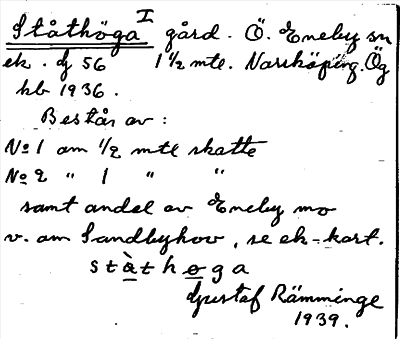 Ståthöga I gård. Ö. Eneby sn
ek. bl 56 1 1/2 mtl. Norrköping. Ög
hb 1936.
Består av:
No 1 om 1/2 mtl skatte
No 2 " 1 " "
samt andel av Eneby mo
v. om Sandbyhov, se ek-kart.
stàthøga
Gustaf Rämminge
1939.